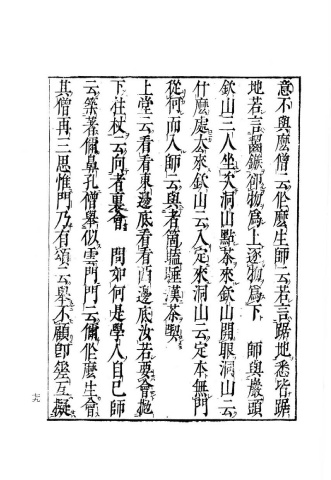 意不與麽僧云作麽生師云若言踞地悉皆踞
地若言齧鏃卸物爲上逐物爲下　師與巖頭
欽山三人坐次洞山點茶來欽山開眼洞山云
什麽處去來欽山云入定來洞山云定本無門
從何而入師云與者箇瞌睡漢茶喫
上堂云看看東邊底看看西邊底汝若要會拋
下拄杖云向者裏會　問如何是學人自己師
云築著儞鼻孔僧舉似雲門門云儞作麽生會
其僧再三思惟門乃有頌云舉不顧即差互擬
十九